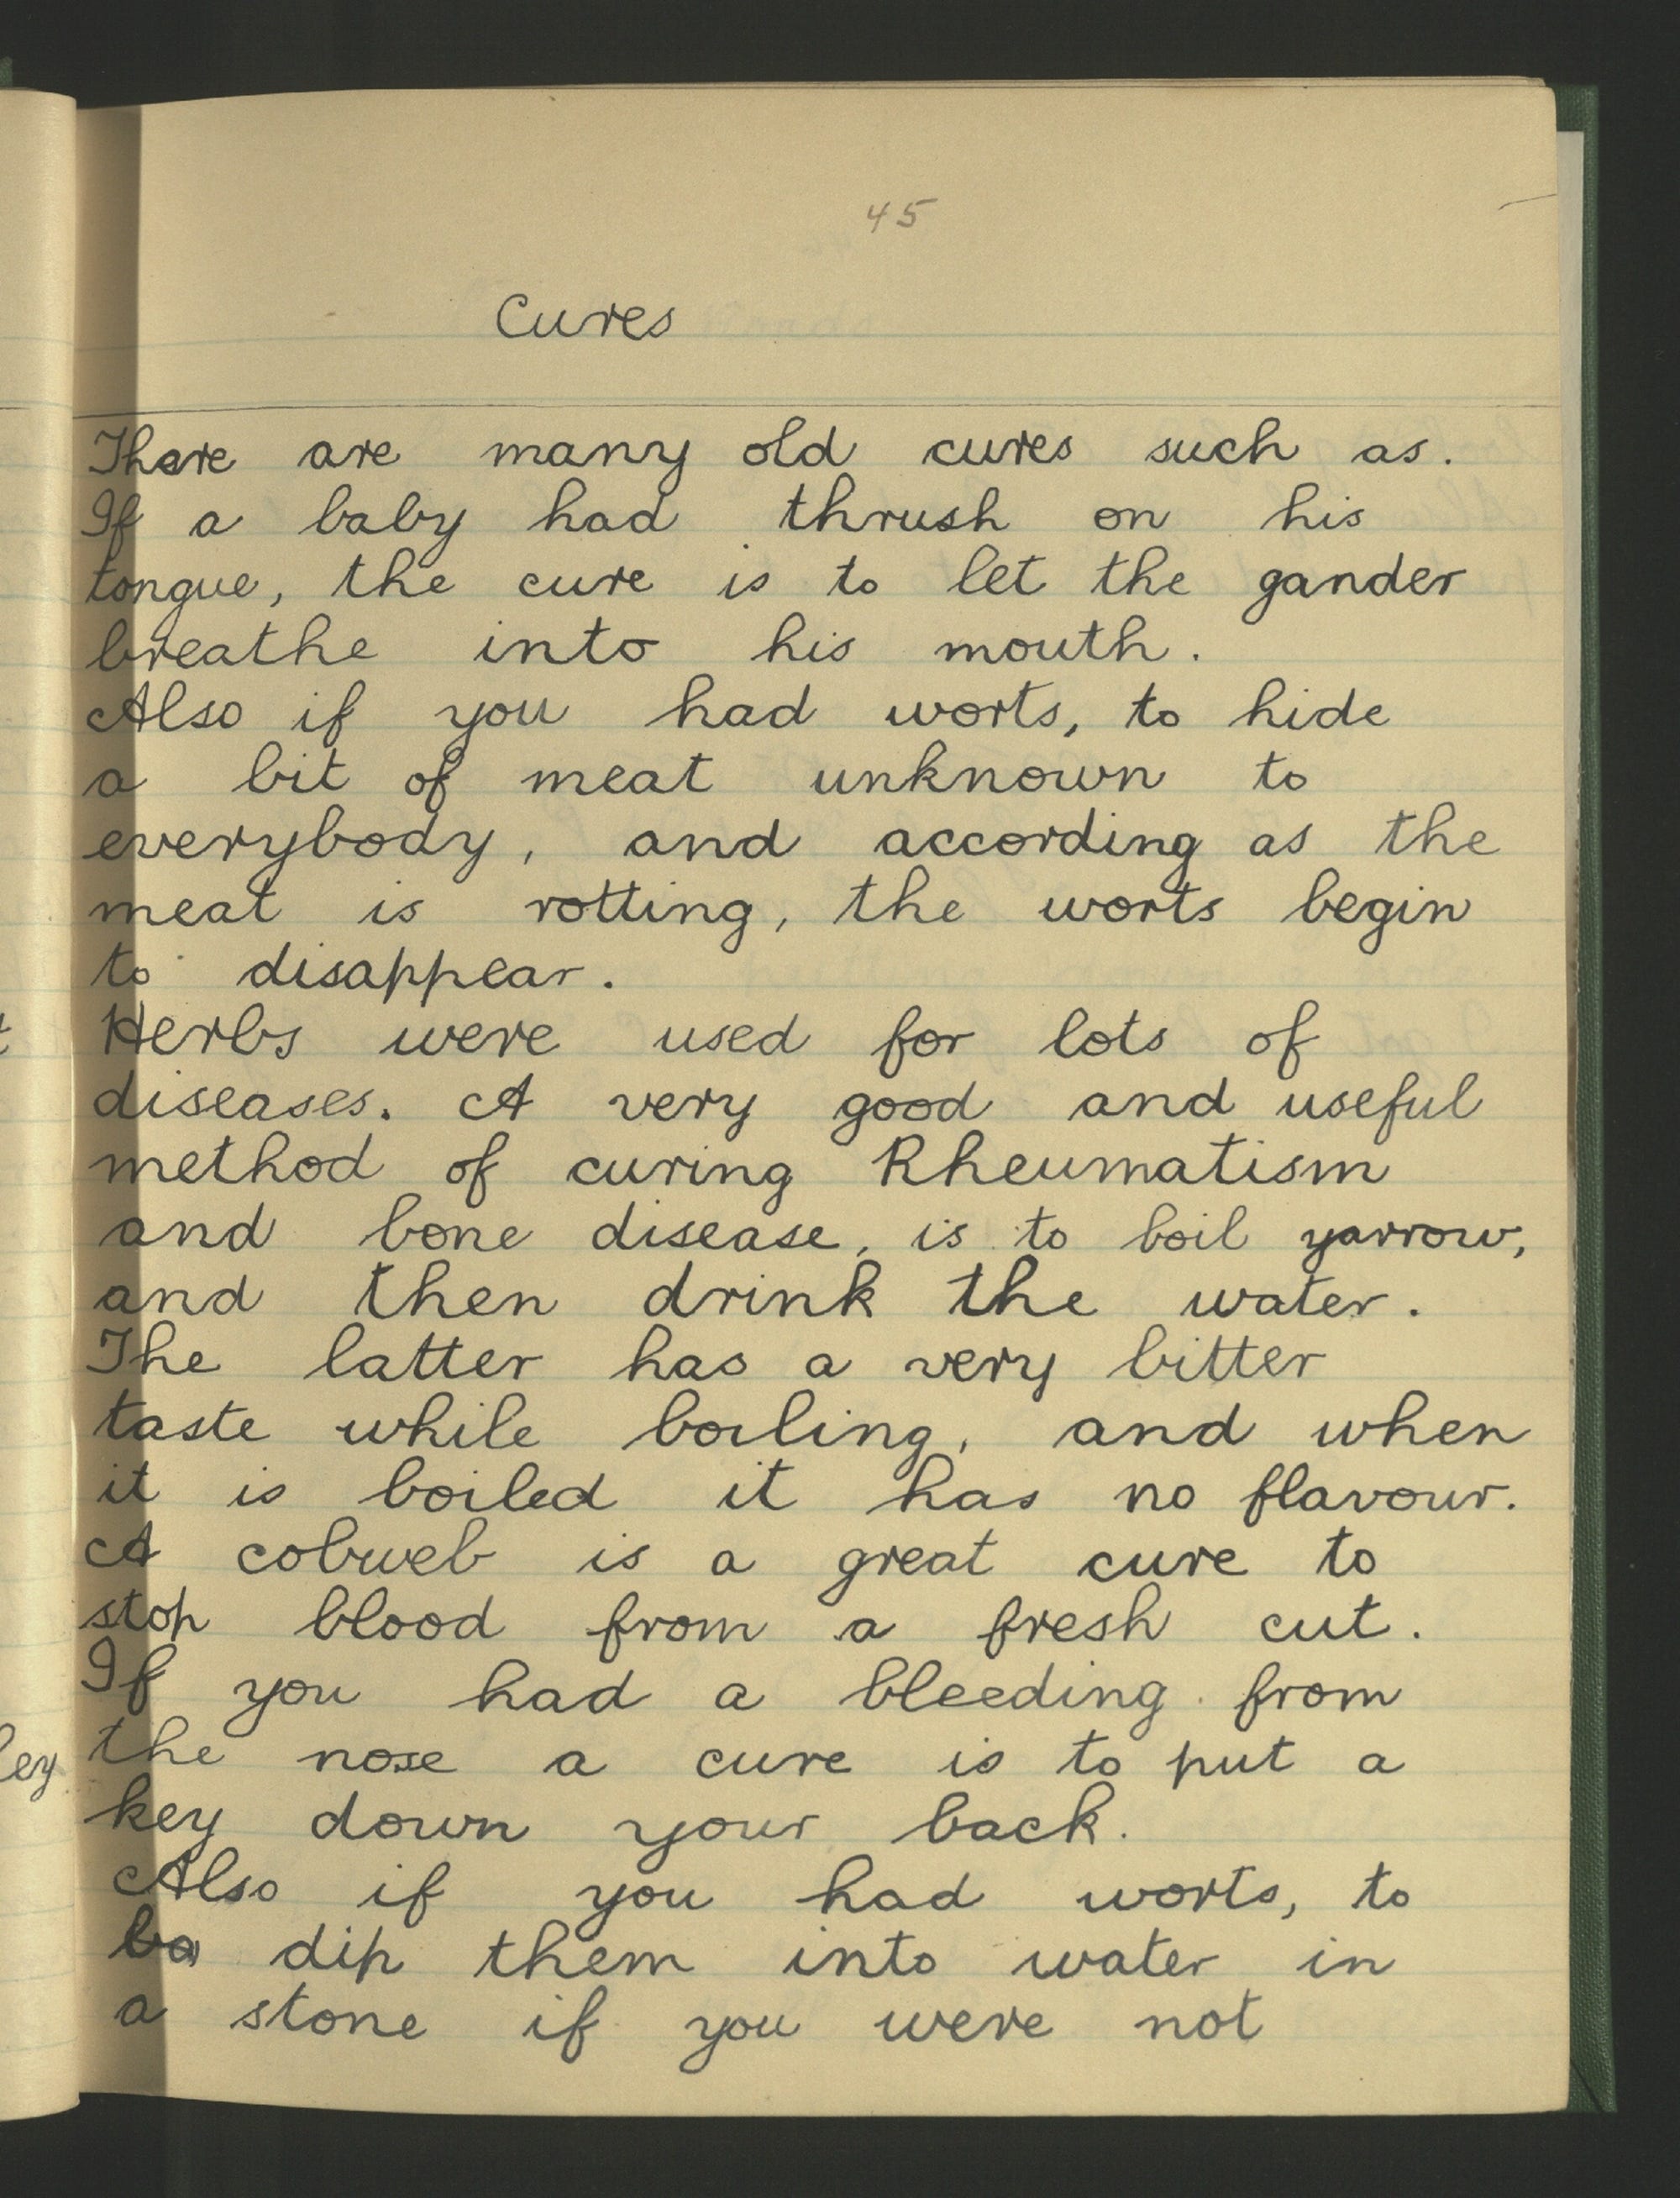 45
Cures
There are many old cures such as.
If a baby had thrush on his
tongue, the cure is to let the gander
breathe into his mouth.
Also if you had worts, to hide
a bit of meat unknown to
everybody, and according as the
meat is rotting, the worts begin
to disappear.
Herbs were used for lots of
diseases. A very good and useful
method of curing Rheumatism
and bone disease, is to boil yarrow,
and then drink the water.
The latter has a very bitter
taste while boiling, and when
it is boiled it has no flavour.
A cobweb is a great cure to
stop blood from a fresh cut.
If you had a bleeding from
the nose a cure is to put a
key down your back.
Also if you had worts, to
dip them into water in
a stone if you were not